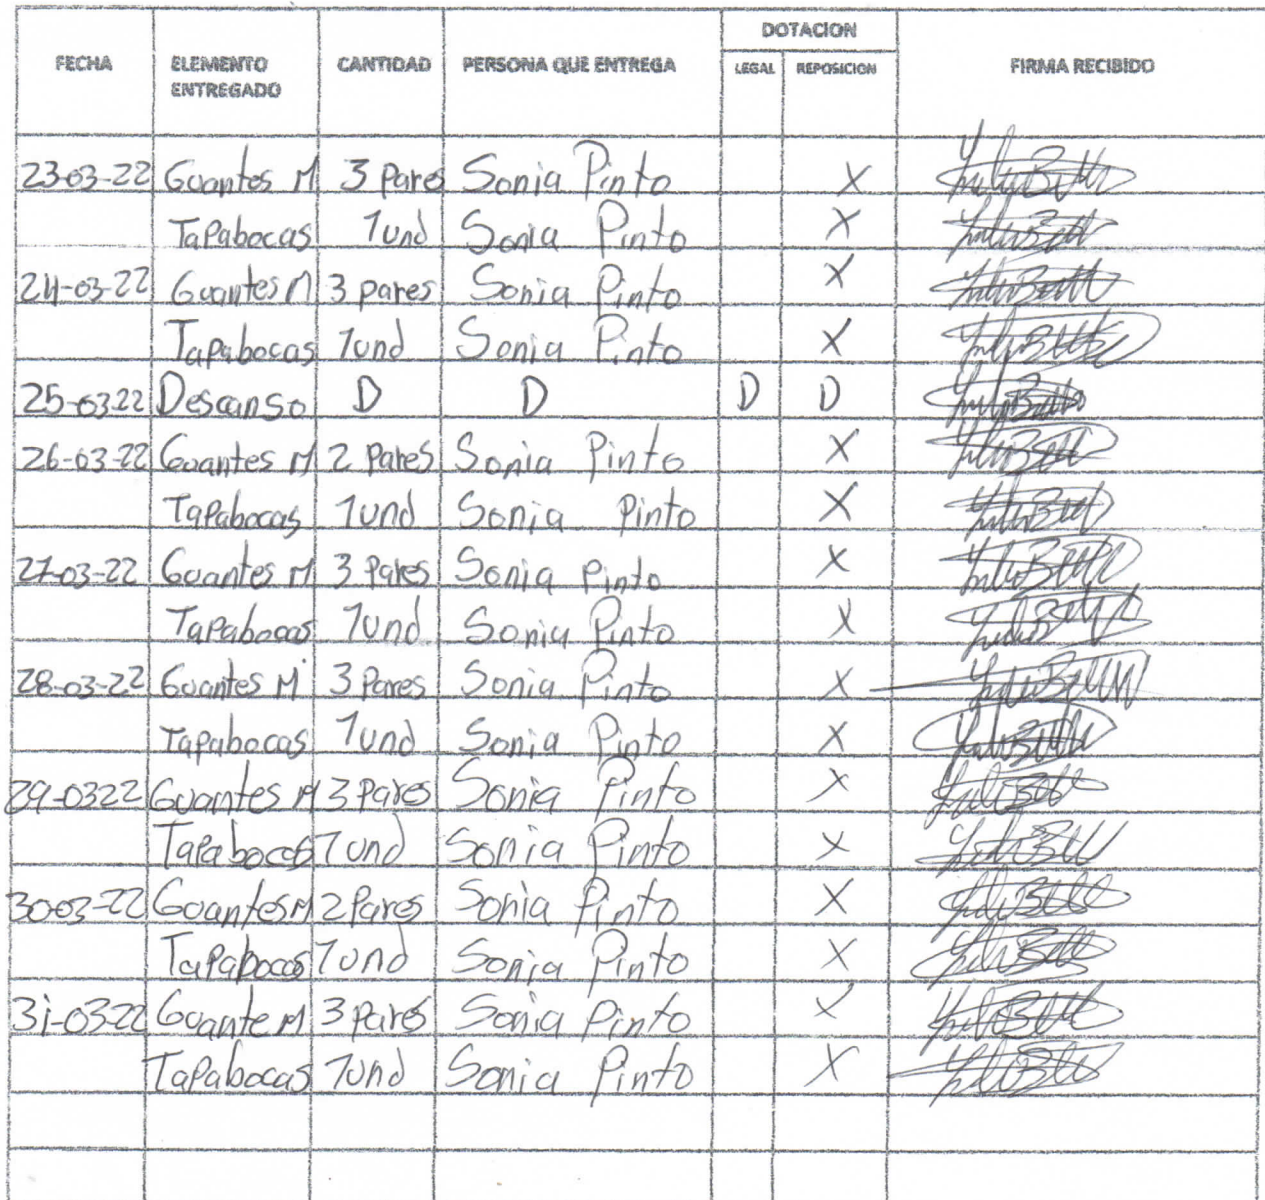 DOTACION
FECHA ELEMENTO ENTREGADO CANTIDAD PERSONA QUE ENTREGA LEGAL REPOSICION FIRMA RECIBIDO
23-03-22 Guantes M 3 Pares Sonia Pinto X
Tapabocas 1und Sonia Pinto X
24-03-22 Guantes M 3 pares Sonia Pinto X
Tapabocas 1und Sonia Pinto X
25-0322 Descanso D D D D
26-03-22 Guantes M 2 Pares Sonia Pinto X
Tapabocas 1und Sonia Pinto X
27-03-22 Guantes M 3 Pares Sonia Pinto X
Tapabocas 1und Sonia Pinto X
28-03-22 Guantes M 3 Pares Sonia Pinto X
Tapabocas 1und Sonia Pinto X
29-0322 Guantes M 3 Pares Sonia Pinto X
Tapabocas 1und Sonia Pinto X
3003-22 Guantes M 2 Pares Sonia Pinto X
Tapabocas 1und Sonia Pinto X
31-0322 Guante M 3 Pares Sonia Pinto X
Tapabocas 1und Sonia Pinto X